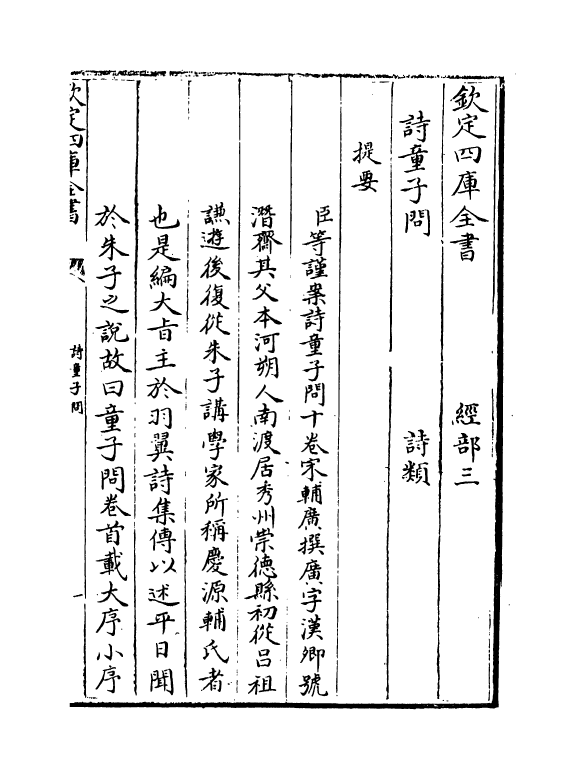 欽定四庫全書　經部三
詩童子問　詩類
提要
臣等謹案詩童子問十卷宋輔廣撰廣字漢卿號
潛齋其父本河朔人南渡居秀州崇德縣初從呂祖
謙遊後復從朱子講學家所稱慶源輔氏者
也是編大旨主於羽翼詩集傳以述平日聞
於朱子之說故曰童子問卷首載大序小序
欽定四庫全書
詩童子問
一